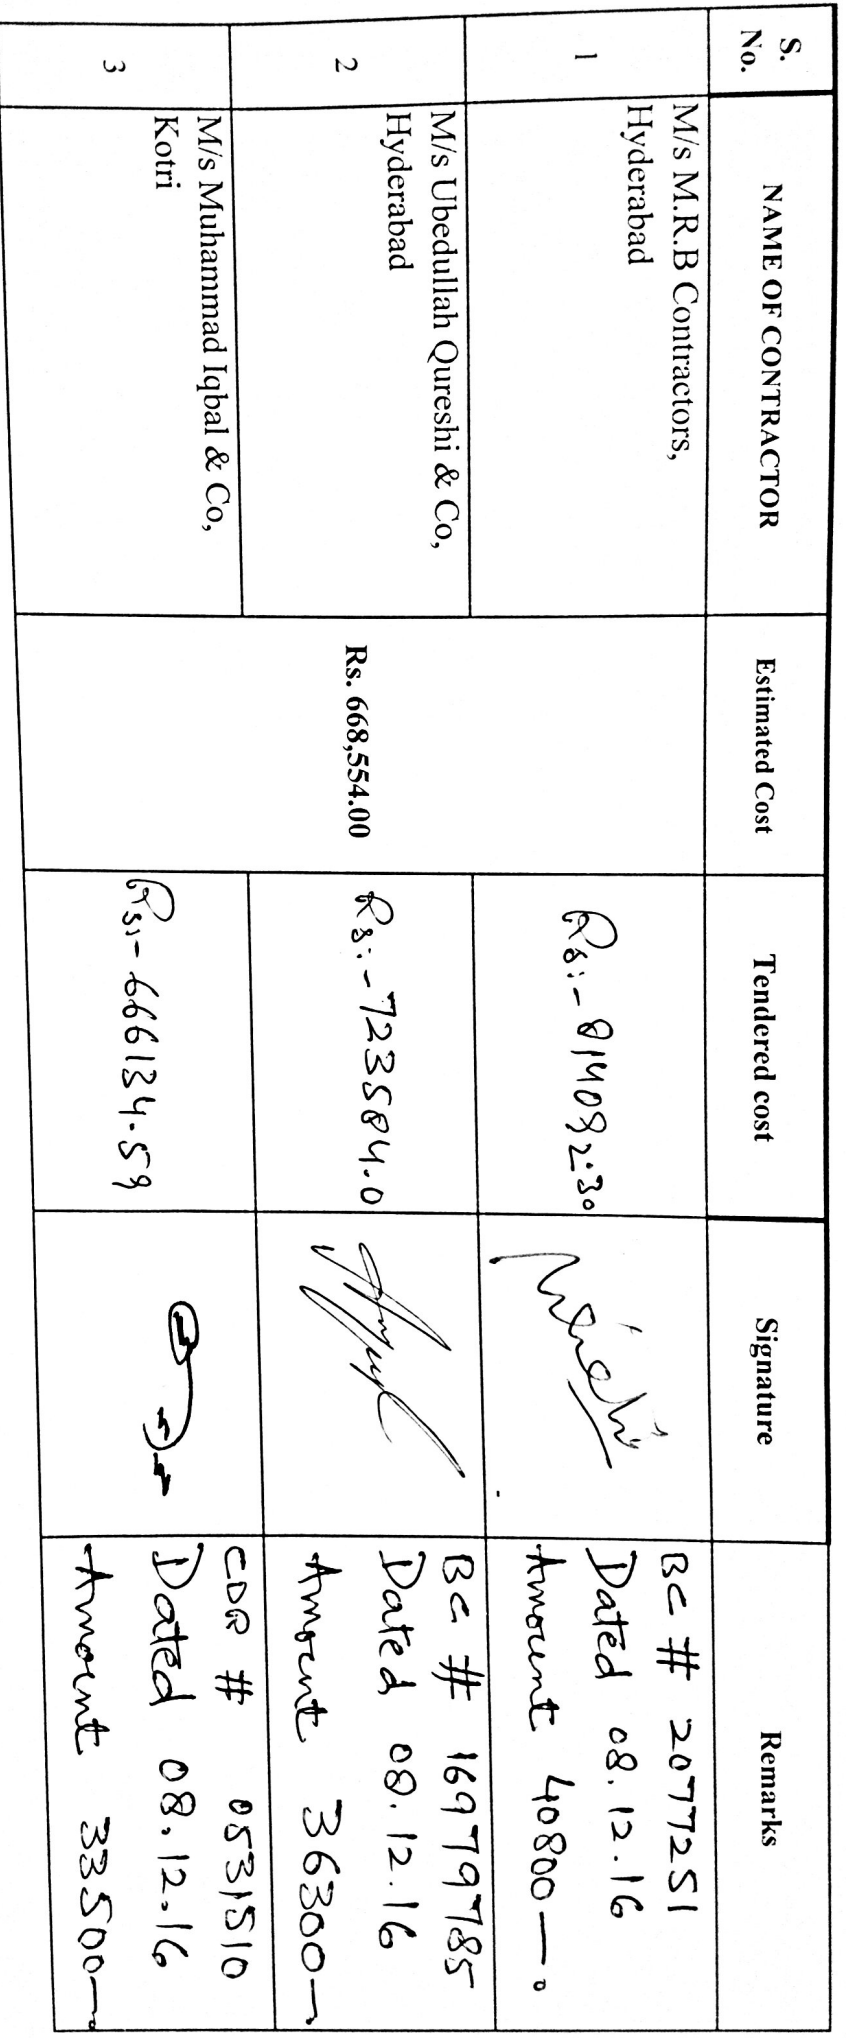 S. No.
NAME OF CONTRACTOR
Estimated Cost
Tendered cost
Signature
Remarks
1
M/s M.R.B Contractors,
Hyderabad
Rs:- 814092.30
BC # 2077251
Dated 08.12.16
Amount 40800—.
2
M/s Ubedullah Qureshi & Co,
Hyderabad
Rs. 668,554.00
Rs:- 723584.0
BC # 16979785
Dated 08.12.16
Amount 36300—
3
M/s Muhammad Iqbal & Co,
Kotri
Rs:- 666134.59
CDR # 0531510
Dated 08.12.16
Amount 33500—.